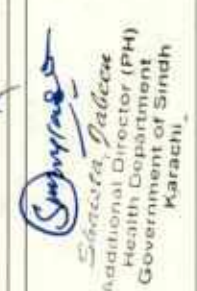 Shaista Jabeen
Additional Director (PH)
Health Department
Government of Sindh
Karachi